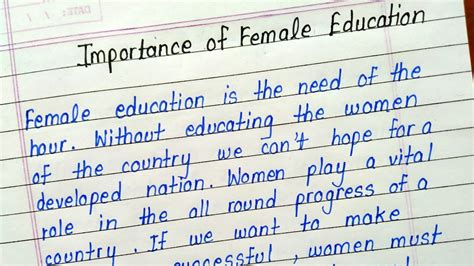 Importance of Female Education
Female education is the need of the
hour. Without educating the women
of the country we can't hope for a
developed nation. Women play a vital
role in the all round progress of a
country. If we want to make
successful, women must